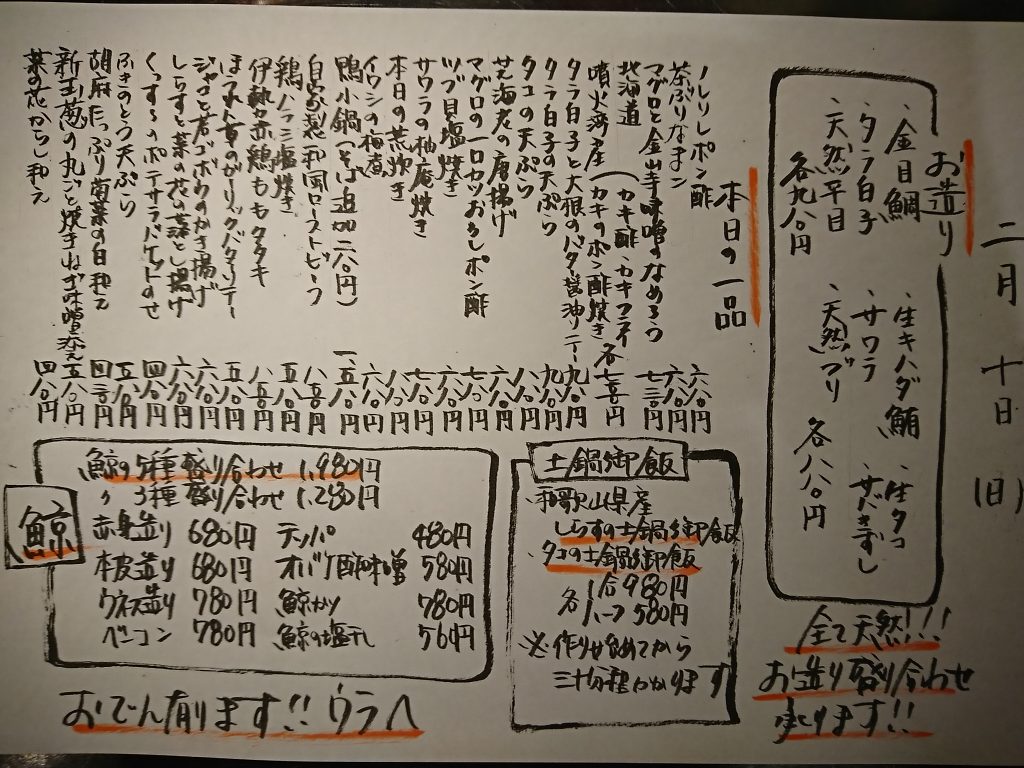 二月 十日 (日)
お造り
・金目鯛
・タラ白子
・天然平目
各九八〇円
・生キハダ鮪
・サワラ
・天然ブリ
・生タコ
各八八〇円
全て天然!!!
お造り盛り合わせ
承ります!!
本日の一品
ポン酢 六八〇円
茶ぶりなまこ 六八〇円
マグロと金山寺味噌のなめろう 七三〇円
北海道
噴火湾産(カキ酢・カキフライ
カキのポン酢焼き 各七三〇円
タラ白子と大根のバター醤油ソテー 九八〇円
タラ白子の天ぷら 九八〇円
タコの天ぷら 八八〇円
芝海老の唐揚げ 六八〇円
マグロの一口カツおろしポン酢 七八〇円
ツブ貝塩焼き 六八〇円
サワラの柚庵焼き 七八〇円
本日の荒炊き 八八〇円
イワシの梅煮 六八〇円
鴨小鍋(そば追加二八〇円) 一、五八〇円
自家製和風ローストビーフ 八八〇円
鶏ハツ塩焼き 五八〇円
伊勢赤鶏ももタタキ 八八〇円
ほうれん草のガーリックバターソテー 五八〇円
ジャコと若ゴボウのかき揚げ 六八〇円
しらすと菜の花の落とし揚げ 六八〇円
くっするのポテサラバゲットのせ 四八〇円
ふきのとう天ぷら 五八〇円
胡麻たっぷり菊菜の白和え 四三〇円
新玉葱の丸ごと焼きねぎ味噌添え 五八〇円
菜の花からし和え 四八〇円
土鍋御飯
・和歌山県産
しらすの土鍋御飯
・タコの土鍋御飯
各 1合 980円
ハーフ 580円
※作り始めてから
三十分程かかります
鯨
鯨の5種盛り合わせ 1,980円
〃 3種盛り合わせ 1,280円
赤身造り 680円 テッパ 480円
本皮造り 680円 オバケ酢味噌 580円
ウネス造り 780円 鯨カツ 780円
ベーコン 780円 鯨の塩干し 560円
おでん有ります!!ウラへ